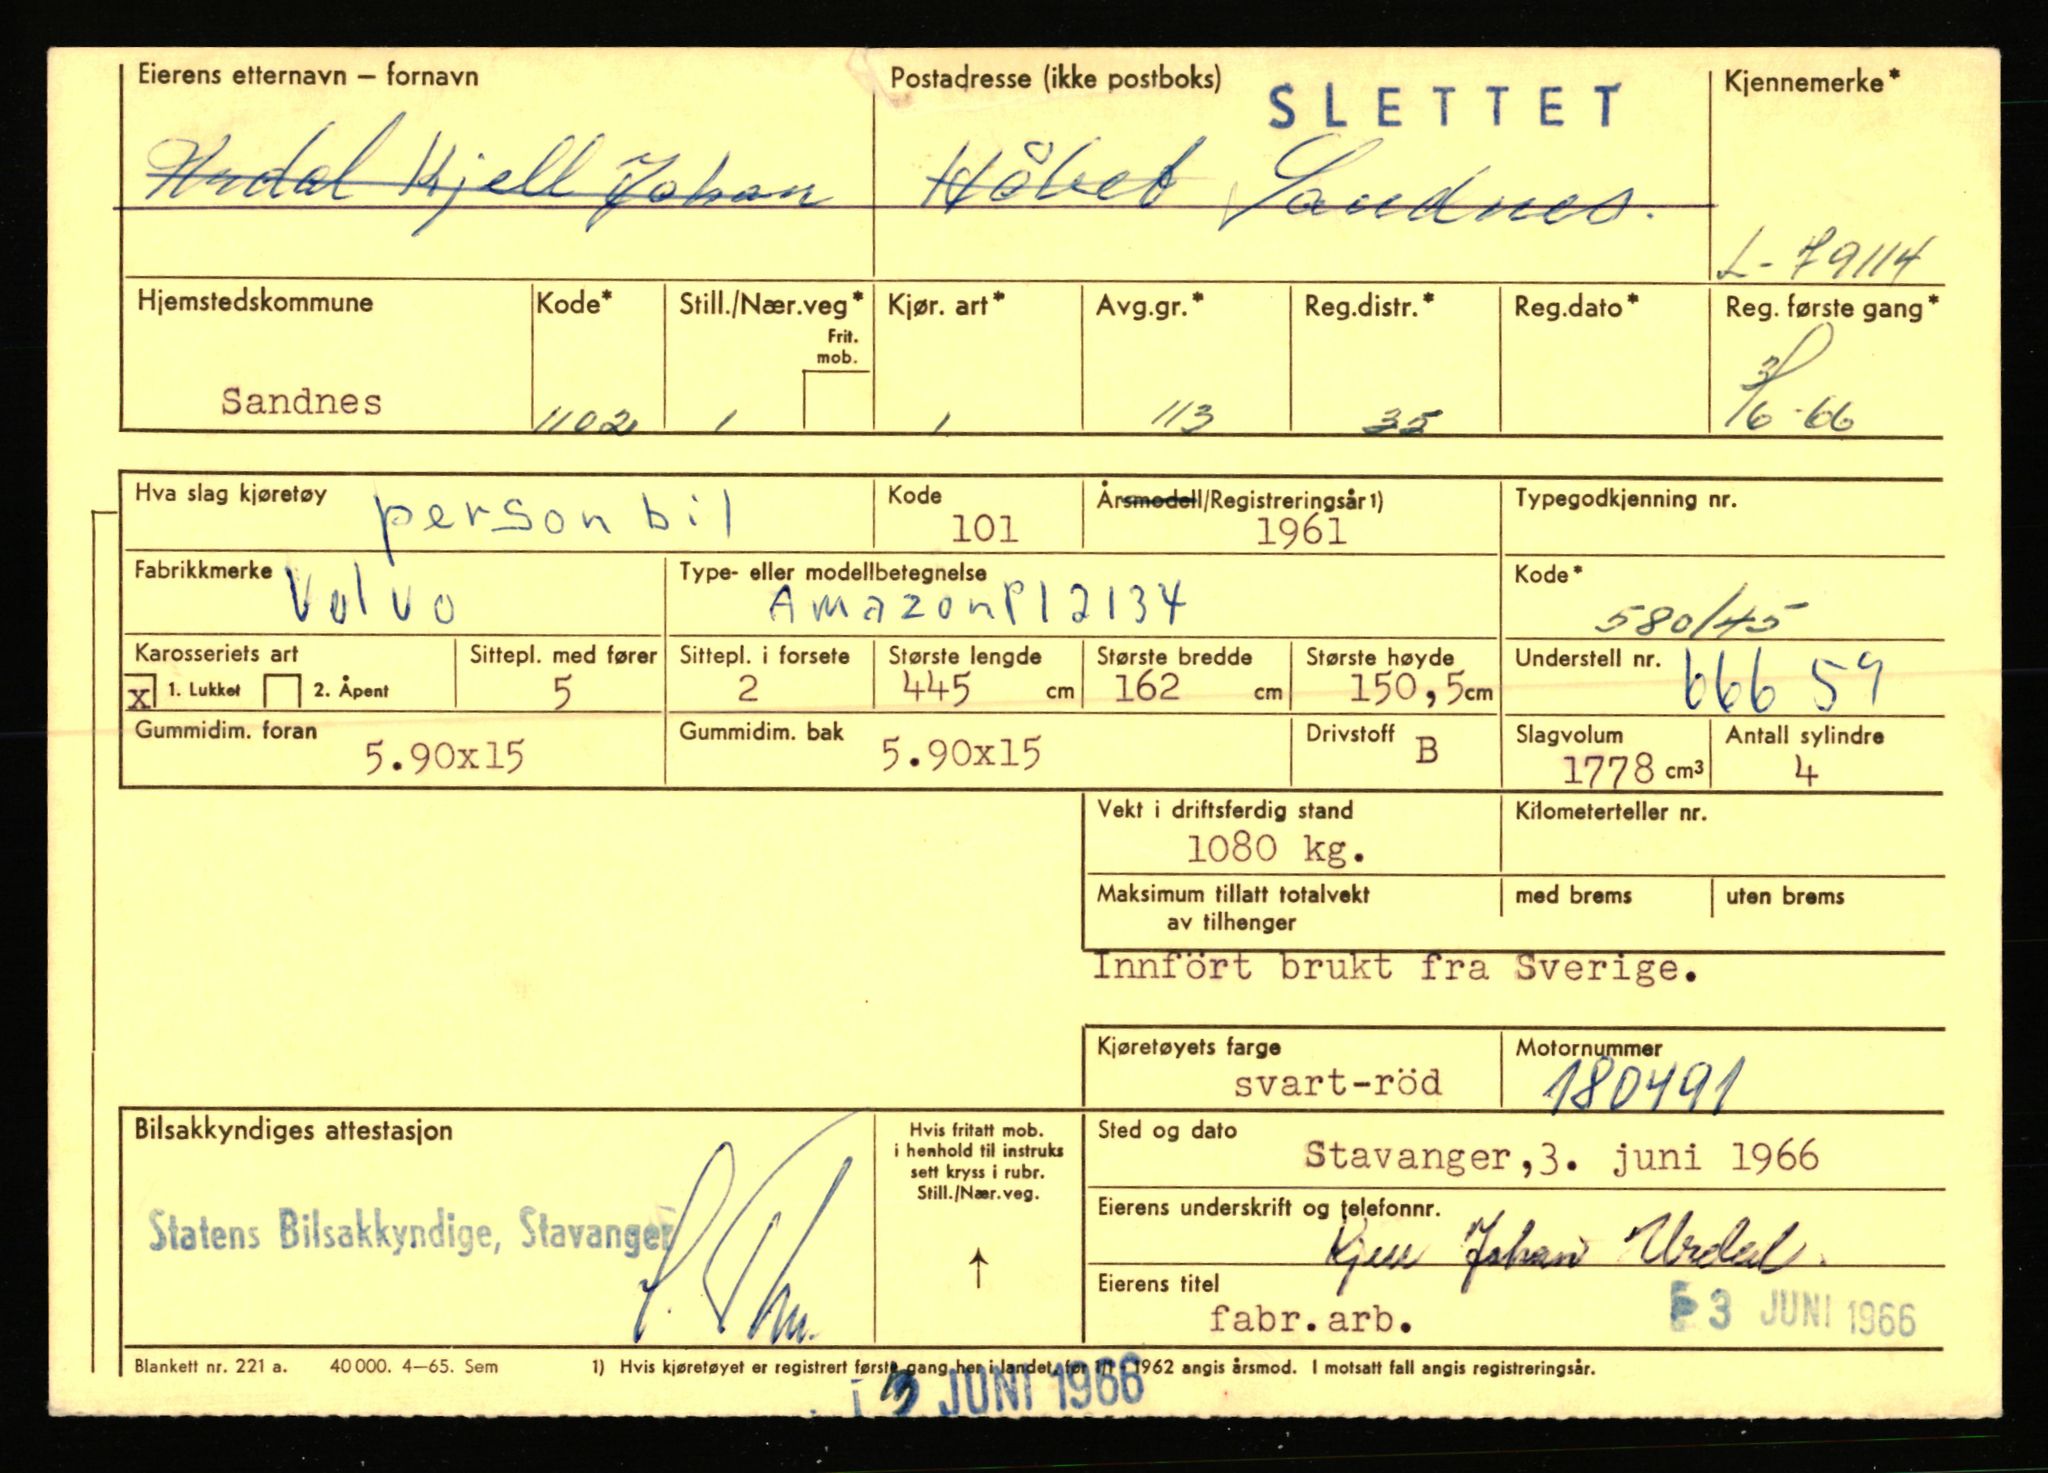 Eierens etternavn – fornavn
Postadresse (ikke postboks)
SLETTET
Kjennemerke*
Urdal Kjell Johan
Håbet Sandnes.
L-79114
Hjemstedskommune
Kode*
Still./Nær.veg*
Frit. mob.
Kjør. art*
Avg.gr.*
Reg.distr.*
Reg.dato*
Reg. første gang*
Sandnes
1102
1
1
113
35
3/6-66
Hva slag kjøretøy
personbil
Kode
101
Årsmodell/Registreringsår 1)
1961
Typegodkjenning nr.
Fabrikkmerke
Volvo
Type- eller modellbetegnelse
Amazon P12134
Kode*
580/45
Karosseriets art
x 1. Lukket 2. Åpent
Sittepl. med fører
5
Sittepl. i forsete
2
Største lengde
445 cm
Største bredde
162 cm
Største høyde
150,5 cm
Understell nr.
66659
Gummidim. foran
5.90x15
Gummidim. bak
5.90x15
Drivstoff
B
Slagvolum
1778 cm3
Antall sylindre
4
Vekt i driftsferdig stand
1080 kg.
Kilometerteller nr.
Maksimum tillatt totalvekt
av tilhenger
med brems
uten brems
Innfört brukt fra Sverige.
Kjøretøyets farge
svart-röd
Motornummer
180491
Bilsakkyndiges attestasjon
Statens Bilsakkyndige, Stavanger
Hvis fritatt mob.
i henhold til instruks
sett kryss i rubr.
Still./Nær.veg.
Sted og dato
Stavanger,3. juni 1966
Eierens underskrift og telefonnr.
Kjell Johan Urdal.
Eierens titel
fabr.arb.
3 JUNI 1966
Blankett nr. 221 a. 40 000. 4–65. Sem
1) Hvis kjøretøyet er registrert første gang her i landet før 1/1 - 1962 angis årsmod. I motsatt fall angis registreringsår.
3 JUNI 1966